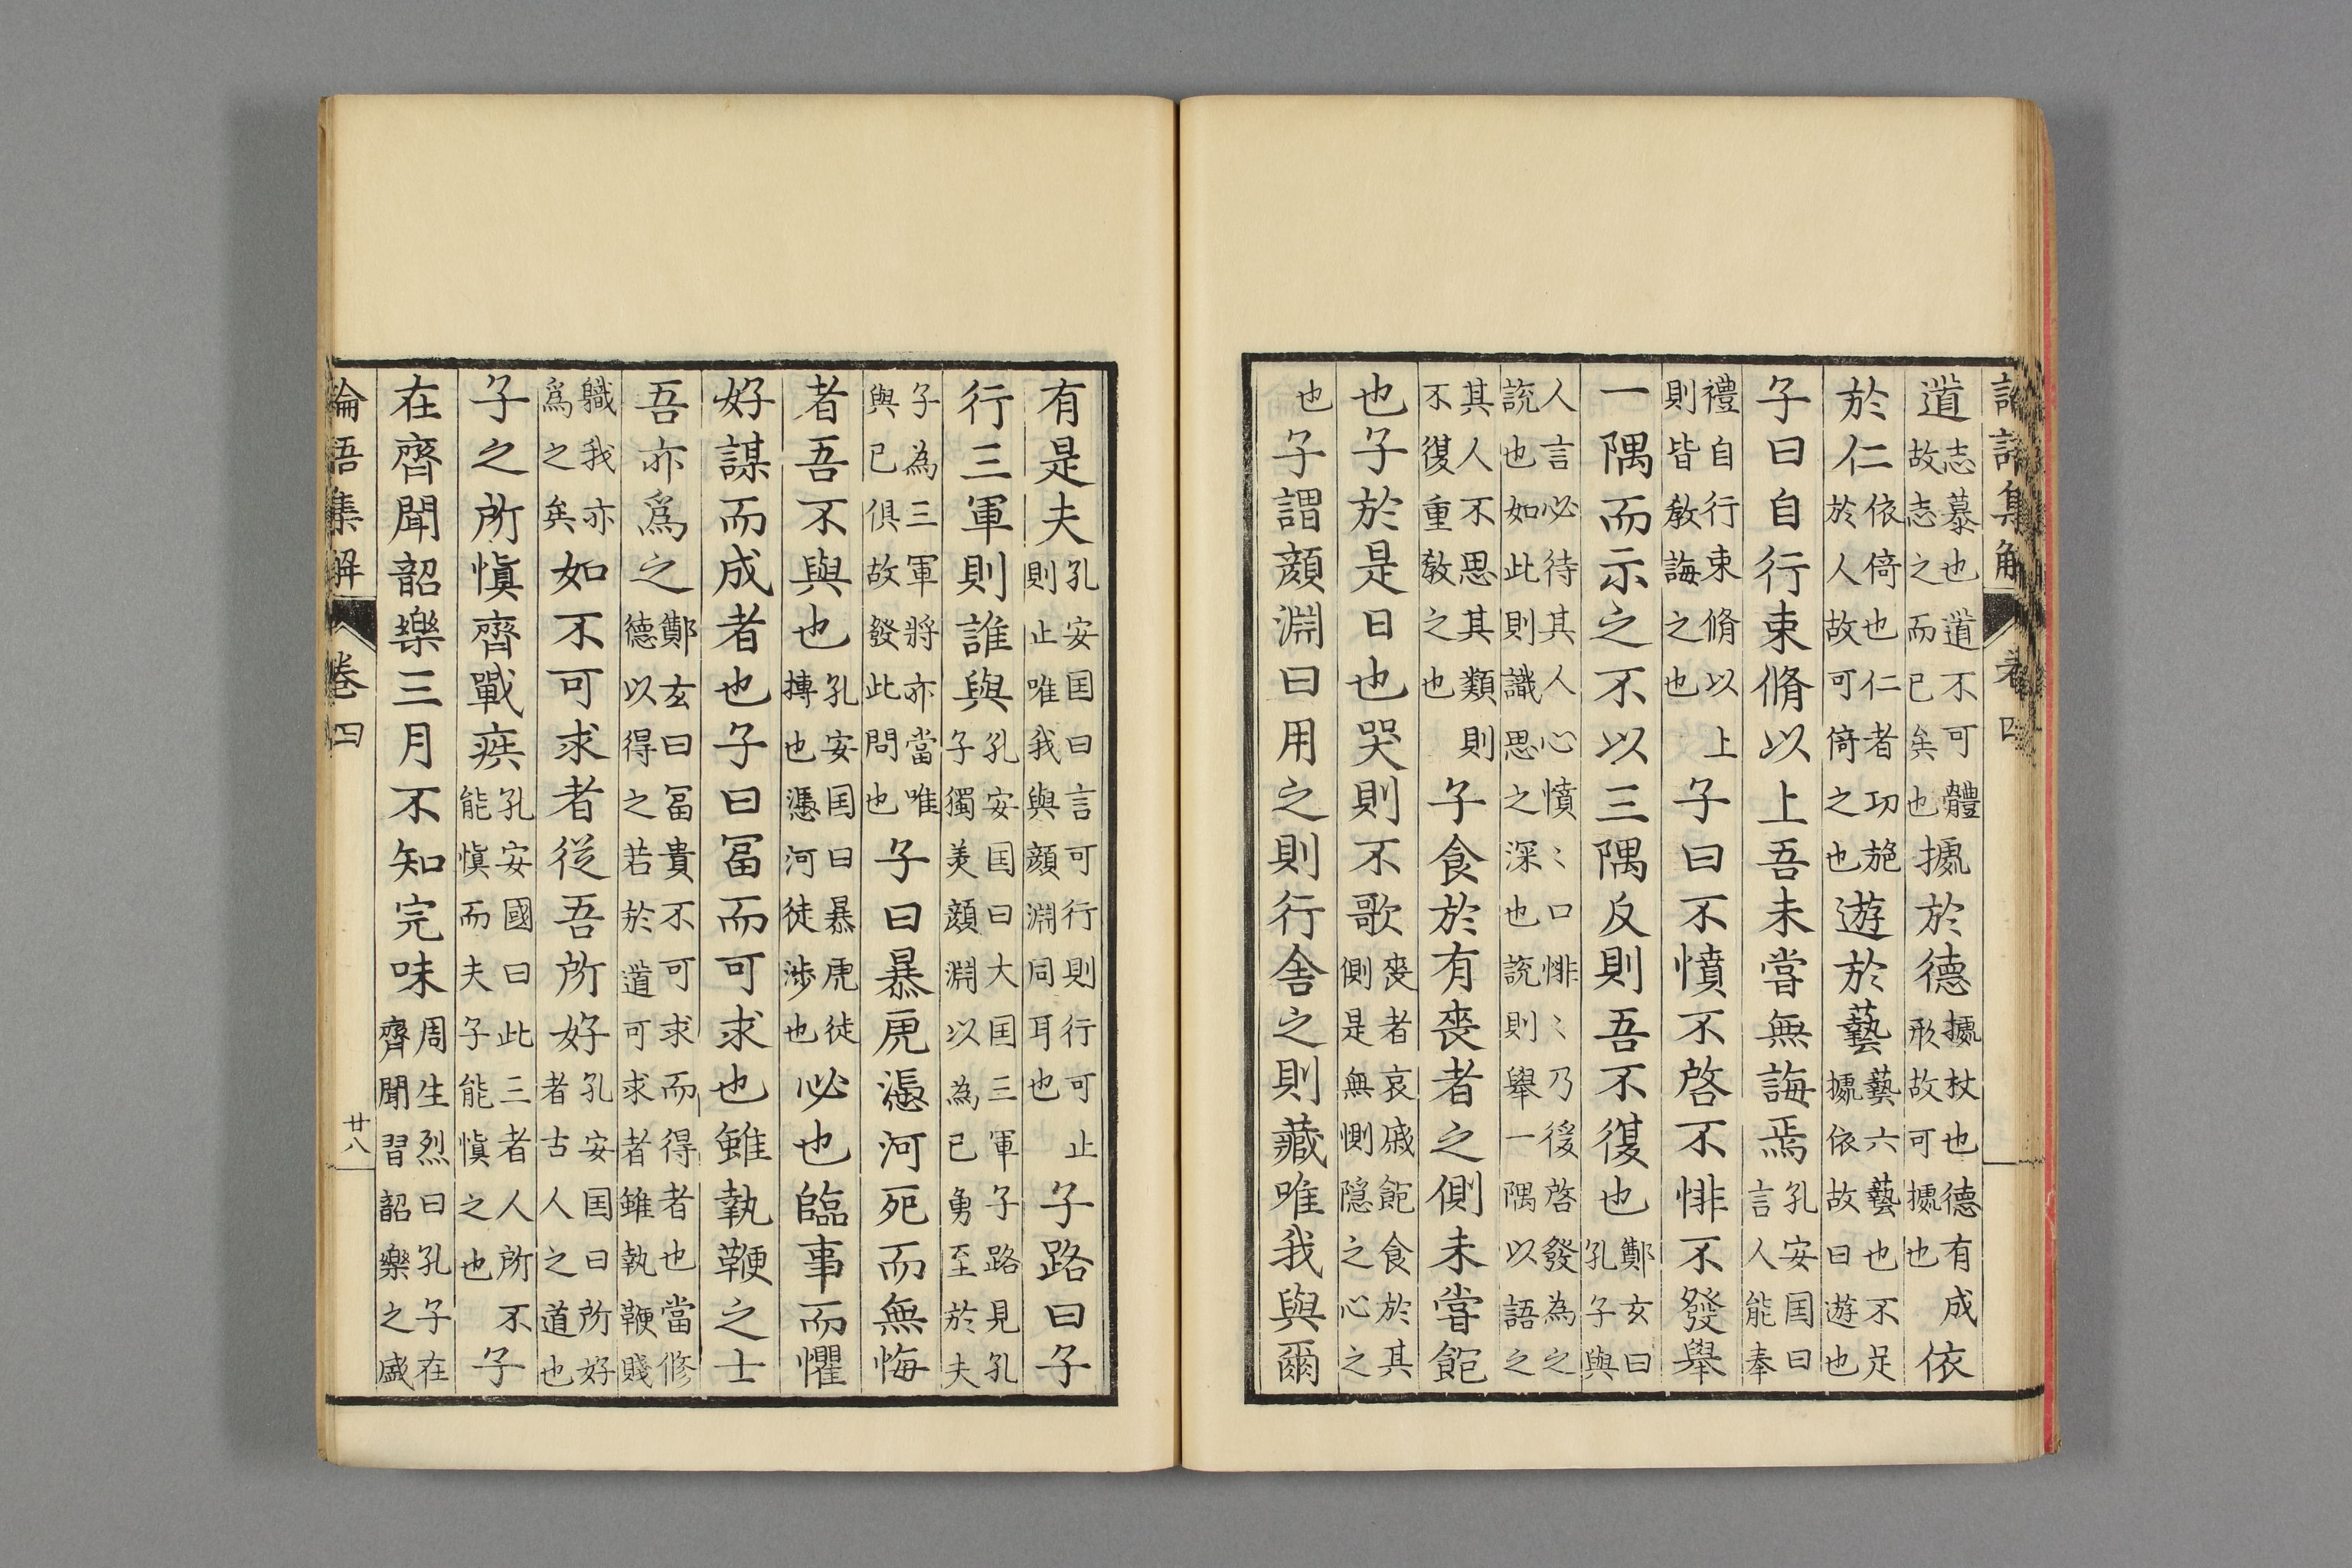 論語集解 卷四
道志慕也道不可體故志之而已矣也㨿於德㨿杖也德有成形故可㨿也依
於仁依倚也仁者功施於人故可倚之也遊於藝藝六藝也不足㨿依故曰遊也
子曰自行束脩以上吾未嘗無誨焉孔安囯曰言人能奉
禮自行束脩以上則皆敎誨之也子曰不憤不啓不悱不發舉
一隅而示之不以三隅反則吾不復也鄭玄曰孔子與
人言必待其人心憤〻口悱〻乃後啓發為之說也如此則識思之深也說則舉一隅以語之
其人不思其類則不復重敎之也子食於有喪者之側未嘗飽
也子於是日也哭則不歌喪者哀戚飽食於其側是無惻隱之心之
也子謂顔淵曰用之則行舍之則藏唯我與爾
有是夫孔安囯曰言可行則行可止則止唯我與顔淵同耳也子路曰子
行三軍則誰與孔安囯曰大囯三軍子路見孔子獨美顔淵以為已勇至於夫
子為三軍將亦當唯與已俱故發此問也子曰暴虎馮河死而無悔
者吾不與也孔安囯曰暴虎徒搏也馮河徒涉也必也臨事而懼
好謀而成者也子曰冨而可求也雖執鞭之士
吾亦爲之鄭玄曰冨貴不可求而得者也當修德以得之若於道可求者雖執鞭賤
軄我亦爲之矣如不可求者從吾所好孔安囯曰所好者古人之道也
子之所慎齊戰疾孔安國曰此三者人所不能慎而夫子能慎之也子
在齊聞韶樂三月不知完味周生烈曰孔子在齊聞習韶樂之盛
論語集解 卷四 廿八